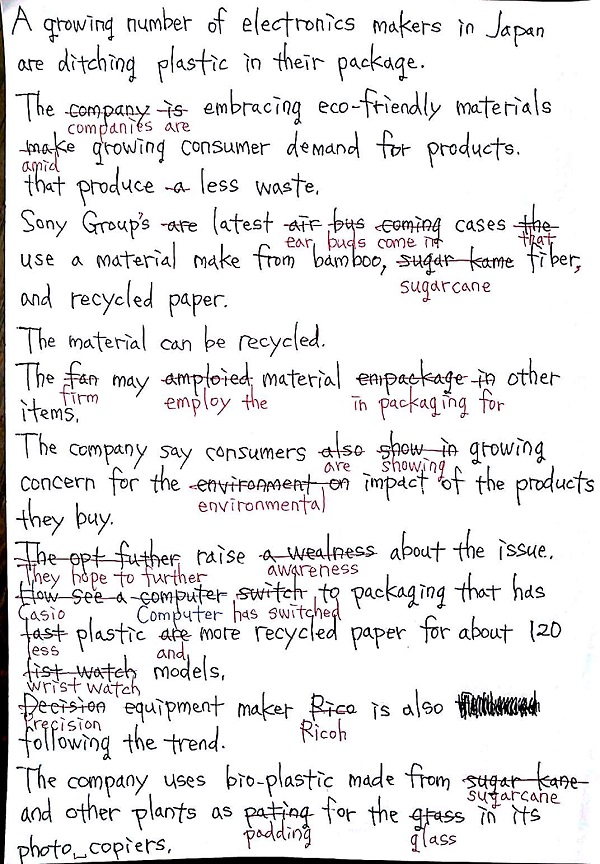 A growing number of electronics makers in Japan
are ditching plastic in their package.
The company is embracing eco-friendly materials
companies are
make growing consumer demand for products.
amid
that produce a less waste.
Sony Group's are latest air bus coming cases the
ear buds come in that
use a material make from bamboo, sugar kame fiber,
sugarcane
and recycled paper.
The material can be recycled.
The fan may amploied material enpackage in other
firm employ the in packaging for
items.
The company say consumers also show in growing
are showing
concern for the environment on impact of the products
environmental
they buy.
The opt futher raise a wealness about the issue.
They hope to further awareness
How see a computer switch to packaging that has
Casio Computer has switched
fast plastic are more recycled paper for about 120
less and
list watch models,
wrist watch
Decision equipment maker Rico is also
Precision Ricoh
following the trend.
The company uses bio-plastic made from sugar kane
sugarcane
and other plants as pating for the grass in its
padding glass
photo copiers.